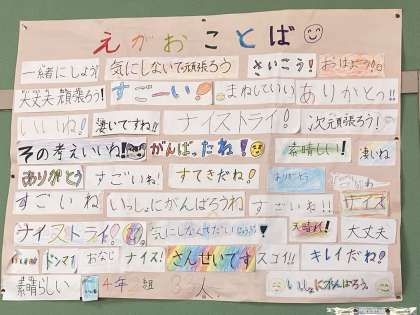 えがおことば
一緒にしよう! 気にしないで頑張ろう さいこう! おはよう!
大丈夫 頑張ろう! すごーい! まねしていい ありがとっ!!
いいね! 凄いですね!! ナイストライ! 次元頑張ろう!
その考えいいね! がんばったね! 素晴しい! 凄いね
ありがとう すごいね! すてきだね! ありがとう
すごいね いっしょにがんばろうね すごいね!! ナイス
ナイストライ! 気にしなくて 天晴れ! 大丈夫
ドンマイ おなじ ナイス! さんせいです スゴイ!! キレイだね!
素晴らしい 4年 組 3 人 いっしょにがんばろう